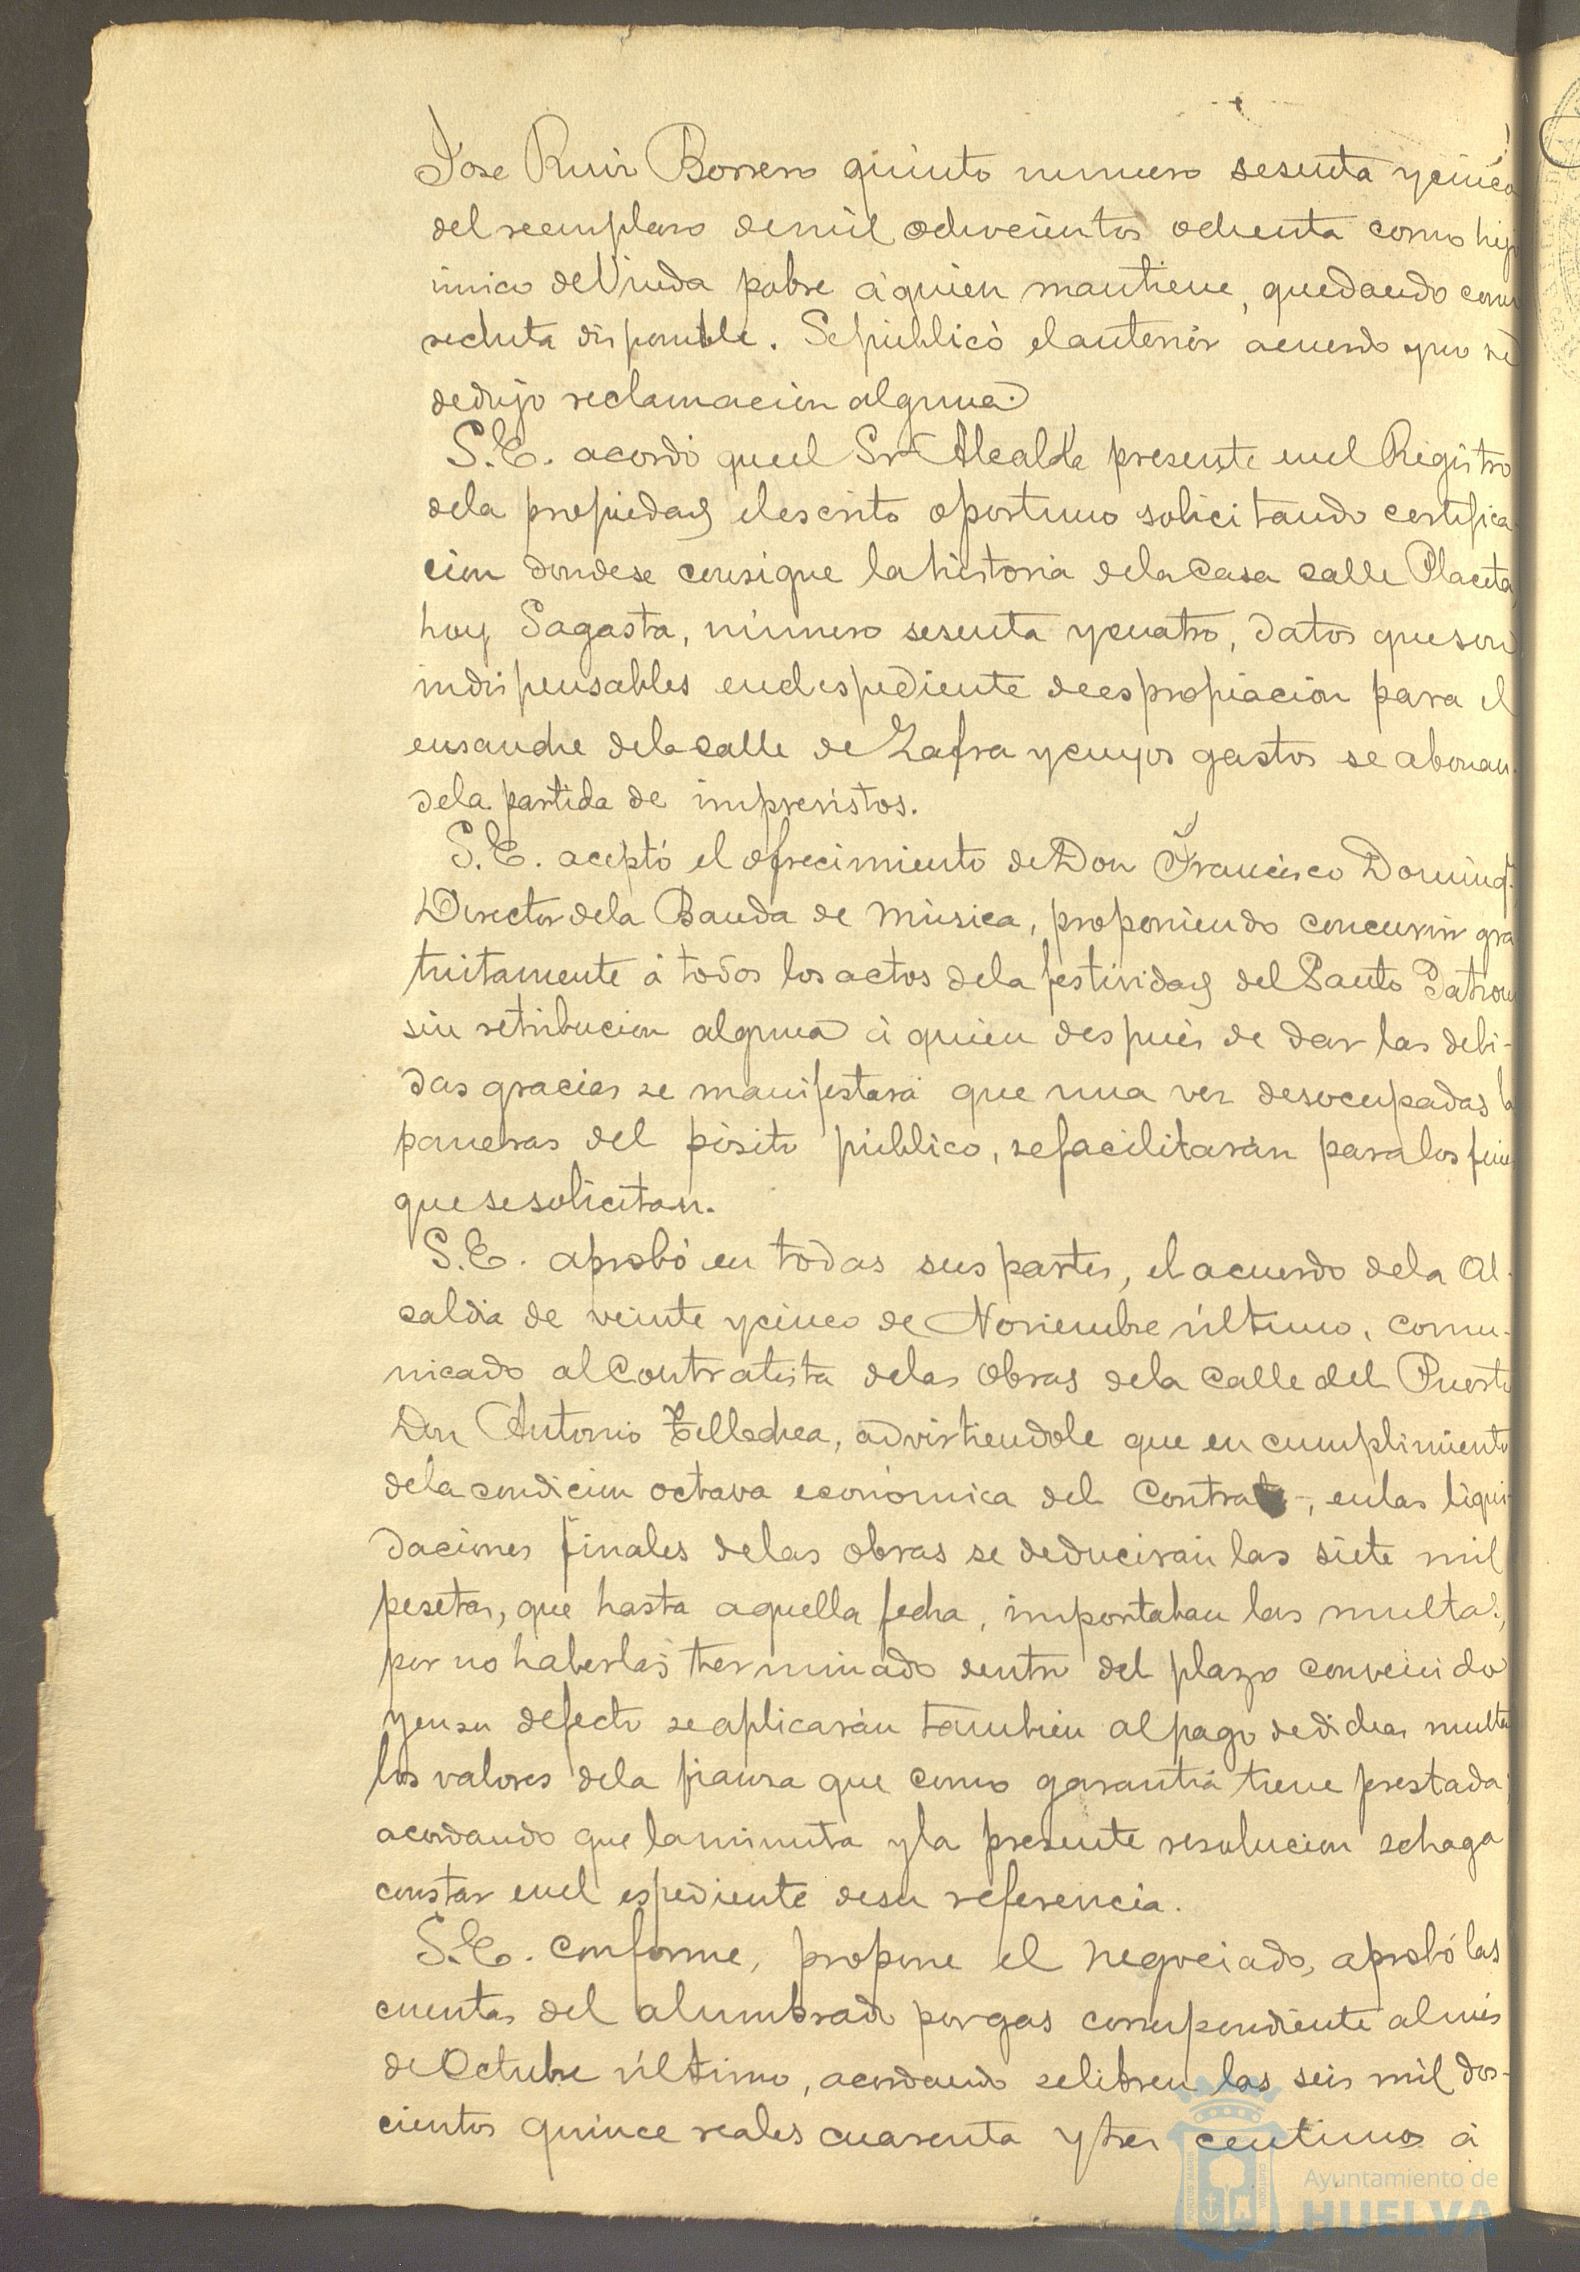 Jose Ruiz Borrero quinto numero sesenta y cinco
del reemplazo de mil ochocientos ochenta como hijo
único de Viuda pobre á quien mantiene, quedando como
recluta disponible. Se publicó el anterior acuerdo y no se
dedujo reclamacion alguna.
S.E. acordó que el Sr Alcalde presente en el Registro
de la propiedad el escrito oportuno solicitando certifica-
cion donde se consigne la historia de la Casa calle Placeta,
hoy Sagasta, número sesenta y cuatro, datos que son
indispensables en el espediente de espropiacion para el
ensanche de la calle de Zafra y cuyos gastos se abonan
de la partida de imprevistos.
S.E. aceptó el ofrecimiento de Don Francisco Doming.
Director de la Banda de Música, proponiendo concurrir gra
tuitamente á todos los actos de la festividad del Santo Patrono
sin retribucion alguna á quien después de dar las debi-
das gracias se manifestará que una vez desocupadas la
paneras del pósito público, se facilitarán para los fines
que se solicitan.
S.E. aprobó en todas sus partes, el acuerdo de la Al-
caldia de veinte y cinco de Noviembre último, comu-
nicado al Contratista de las Obras de la Calle del Puerto
Don Antonio Tellechea, advirtiendole que en cumplimiento
de la condicion octava económica del Contrato, en las liqui-
daciones finales de las obras se deducirán las siete mil
pesetas, que hasta aquella fecha, importaban las multas,
por no haberlas terminado dentro del plazo convenido
y en su defecto se aplicarán tambien al pago de dichas multas
los valores de la fianza que como garantia tiene prestada;
acordando que la minuta y la presente resolucion se haga
constar en el espediente de su referencia.
S.E. conforme, propone el negociado, aprobó las
cuentas del alumbrado por gas correspondiente al més
de Octubre último, acordando se libren las seis mil dos-
cientos quince reales cuarenta y tres centimos á
Ayuntamiento de
HUELVA